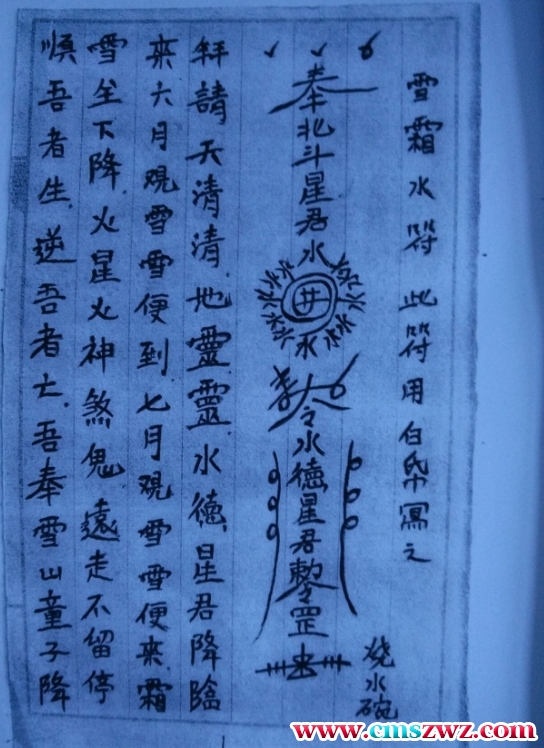 雪霜水符 此符用白帋寫之
燒水碗
奉北斗星君水
井
水
令水德星君勅罡
拜請天清清地靈靈水德星君降臨
来六月覌雪雪便到七月覌雪雪便来霜
雪至下降火星火神煞鬼遠走不留停
順吾者生逆吾者亡吾奉雪山童子降
www.cmszwz.com